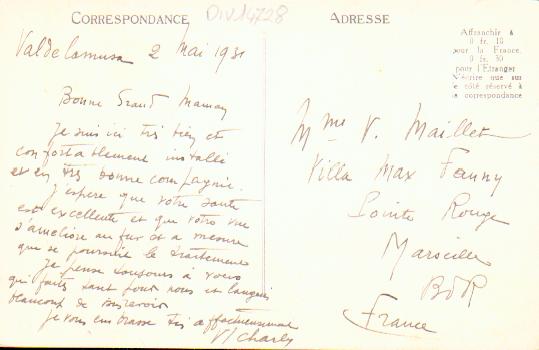 CORRESPONDANCE
Div14728
ADRESSE
Affranchir à
0 fr. 10
pour la France,
0 fr. 30
pour l'Etranger
N'écrire que sur
le côté réservé à
la correspondance
Valdelamusa 2 Mai 1931
Bonne Grand Maman
Je suis ici très bien et
confortablement installé
et en très bonne compagnie.
J'espère que votre santé
est excellente et que votre vue
s'améliore au fur et a mesure
que se poursuit le traitement
Je pense toujours à vous
qui faites tant pour nous et languis
beaucoup de
Je vous embrasse très affectueusement
Charles
Mme V. Maillet
Villa Max Fanny
Pointe Rouge
Marseille
BdR
France